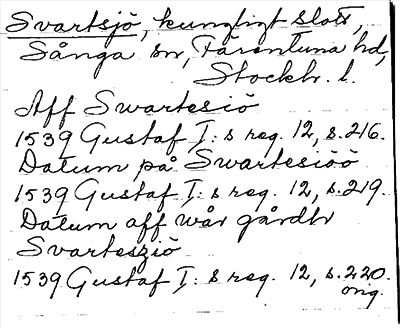 Svartsjö, kungligt slott,
Sånga sn, Färentuna hd,
Stockh. l.
Aff Swartesiö
1539 Gustaf I:s reg. 12, s. 216.
Datum på Swartesiöö
1539 Gustaf I:s reg. 12, s. 219.
Datum aff wår gårdh
Svartesziö
1539 Gustaf I:s reg. 12, s. 220.
orig.